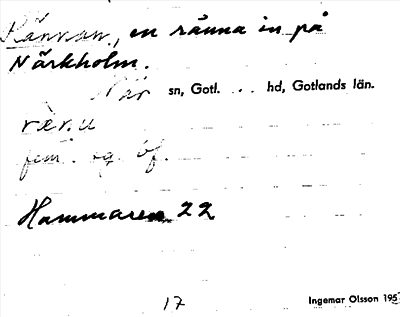 Rännan, en ränna in på
Närkholm.
När sn, Gotl. . . hd, Gotlands län.
fem. sg. bf.
Hammaren 22
17
Ingemar Olsson 195